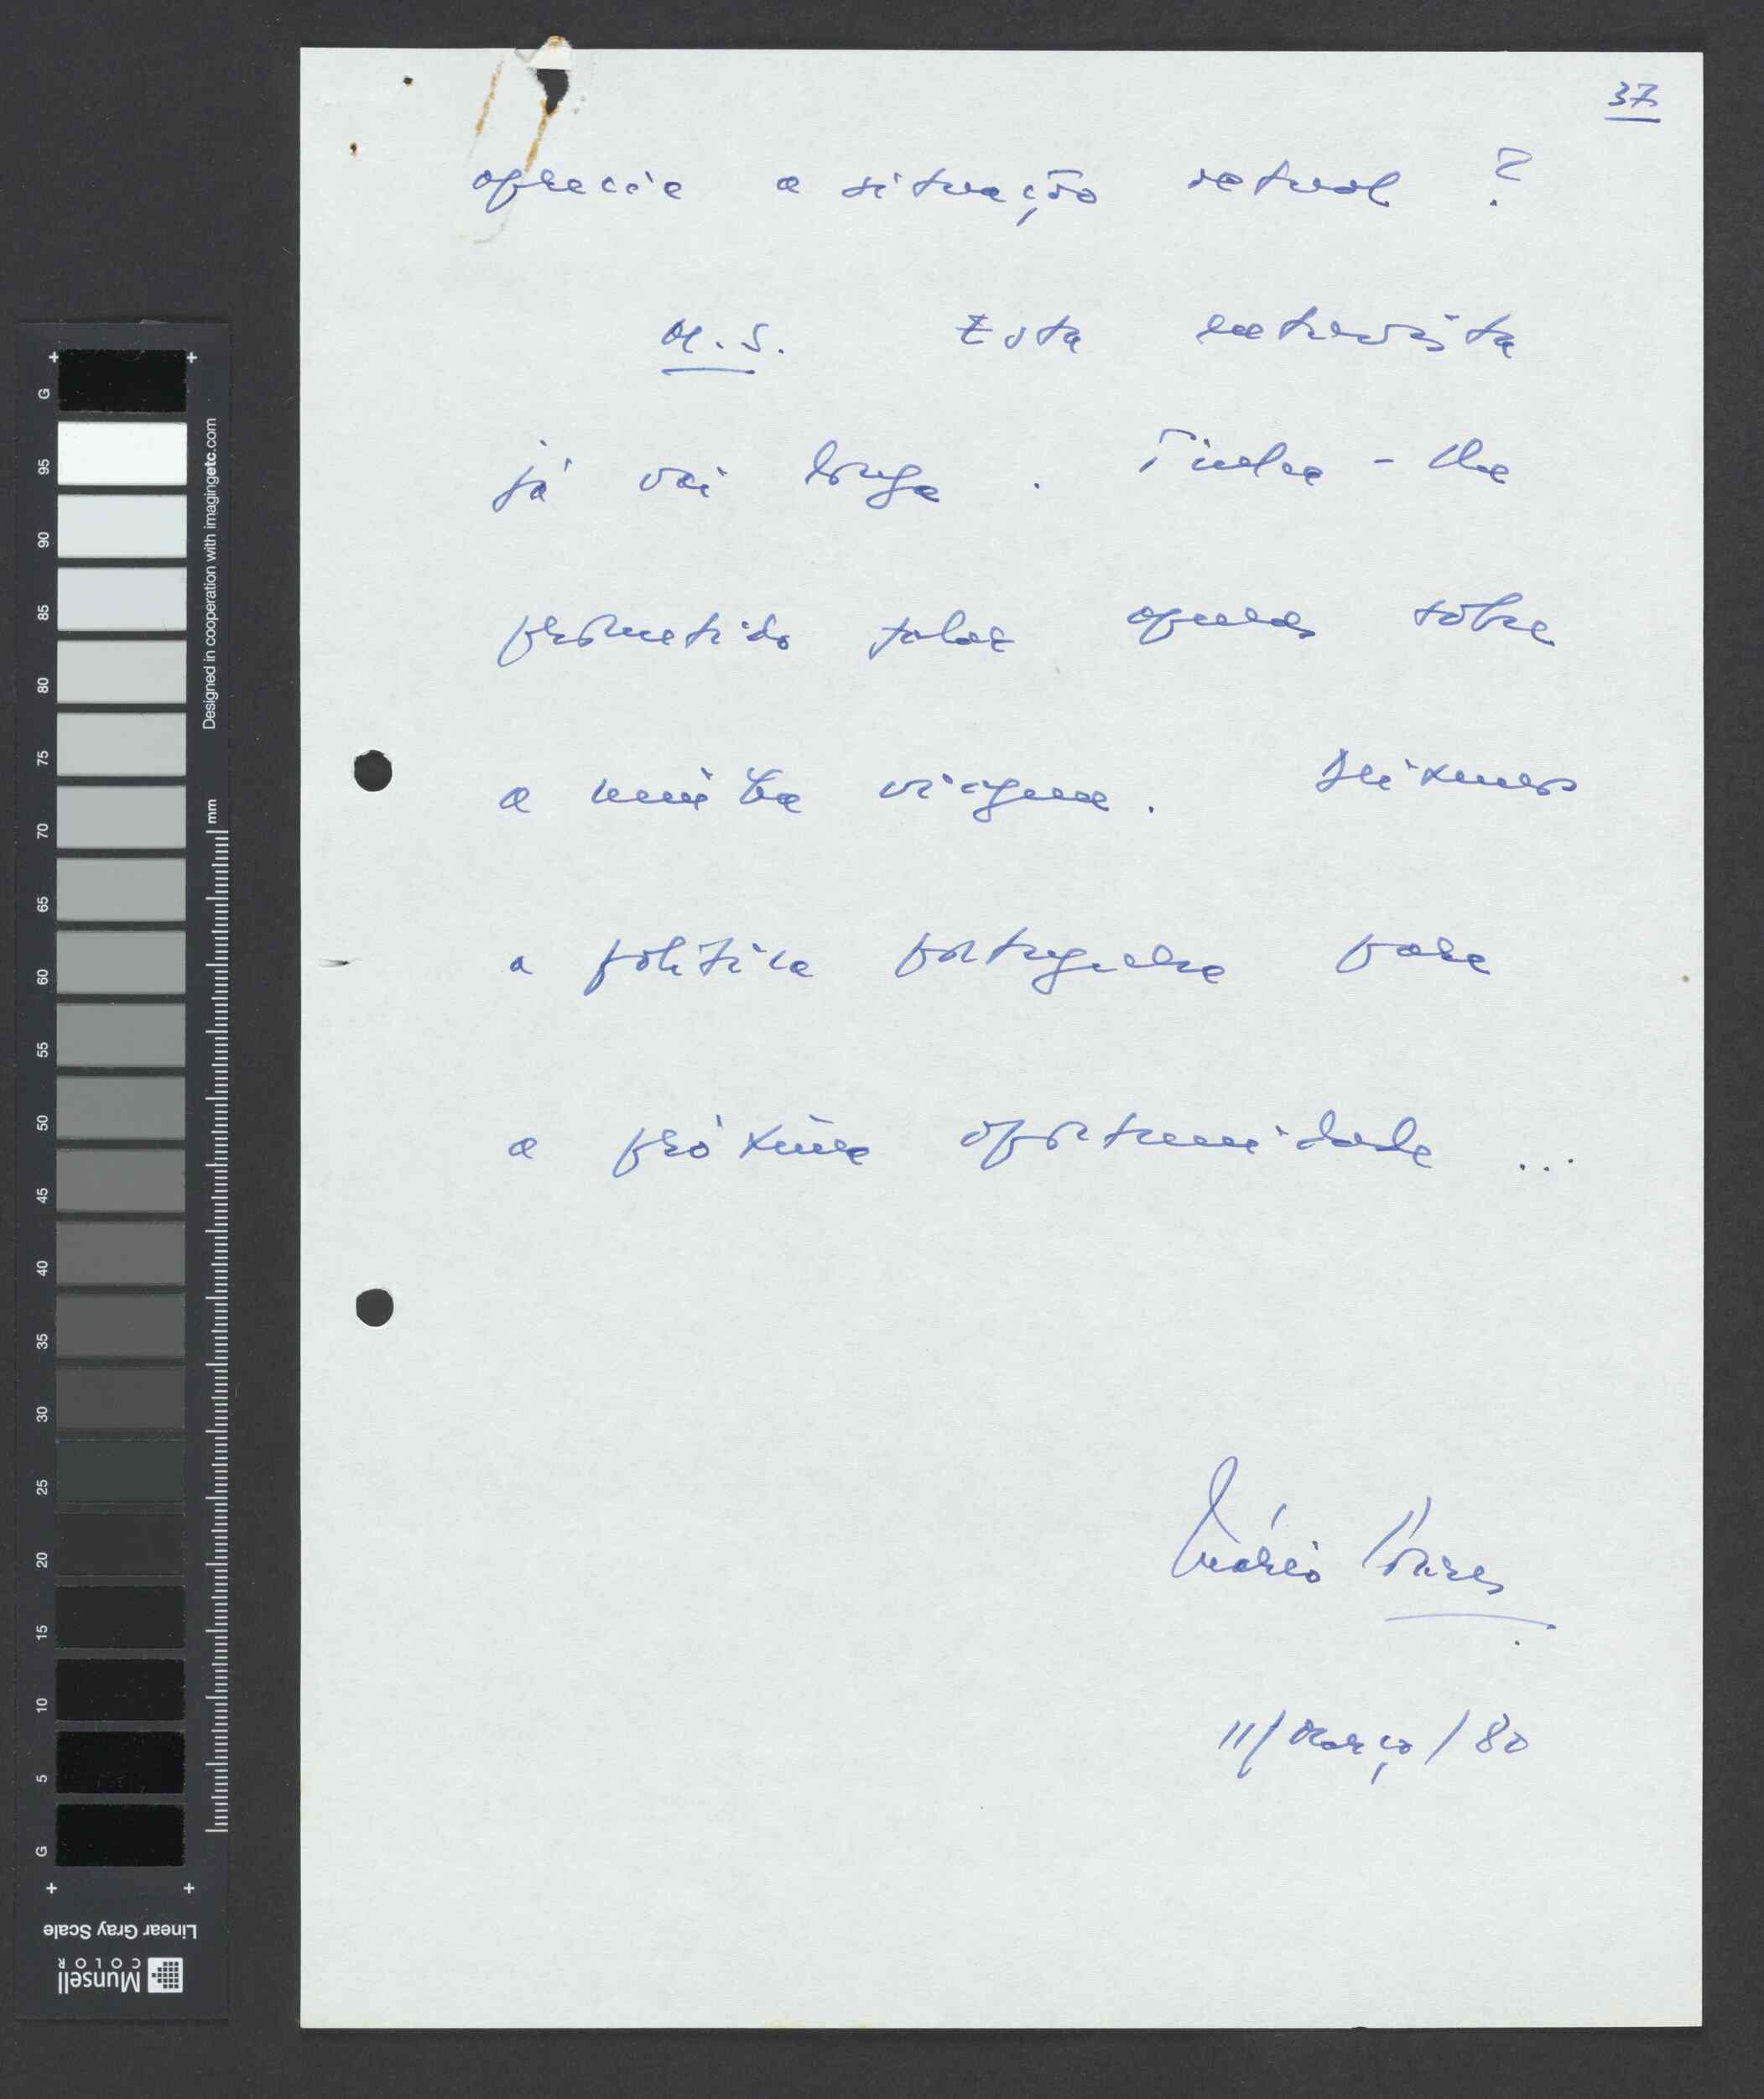 37
aprecia a situação actual ?
M.S. Esta entrevista
já vai longa . Tinha-lhe
prometido falar apenas sobre
a minha viagem. Deixemos
a política portuguesa para
a próxima oportunidade ...
Mário Soares
11/Março/80
G
95
90
85
80
75
70
65
60
55
50
45
40
35
30
25
20
15
10
5
G
Designed in cooperation with imagingetc.com
mm
Linear Gray Scale
Munsell
COLOR